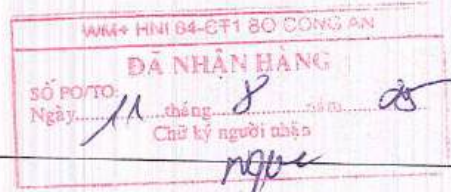 WM+ HNI 64-CT1 BO CONG AN
ĐÃ NHẬN HÀNG
SỐ PO/TO:
Ngày 11 tháng 8 năm 25
Chữ ký người nhận
Ngọc